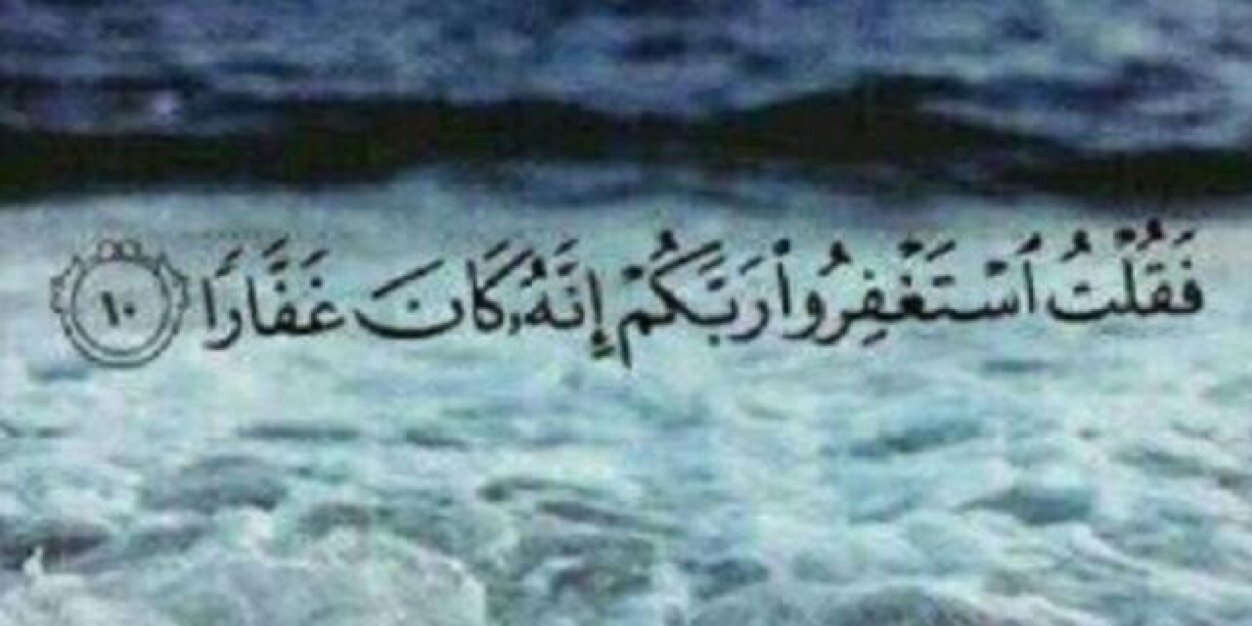 فَقُلْتُ ٱسْتَغْفِرُوا۟ رَبَّكُمْ إِنَّهُۥ كَانَ غَفَّارًا ١٠